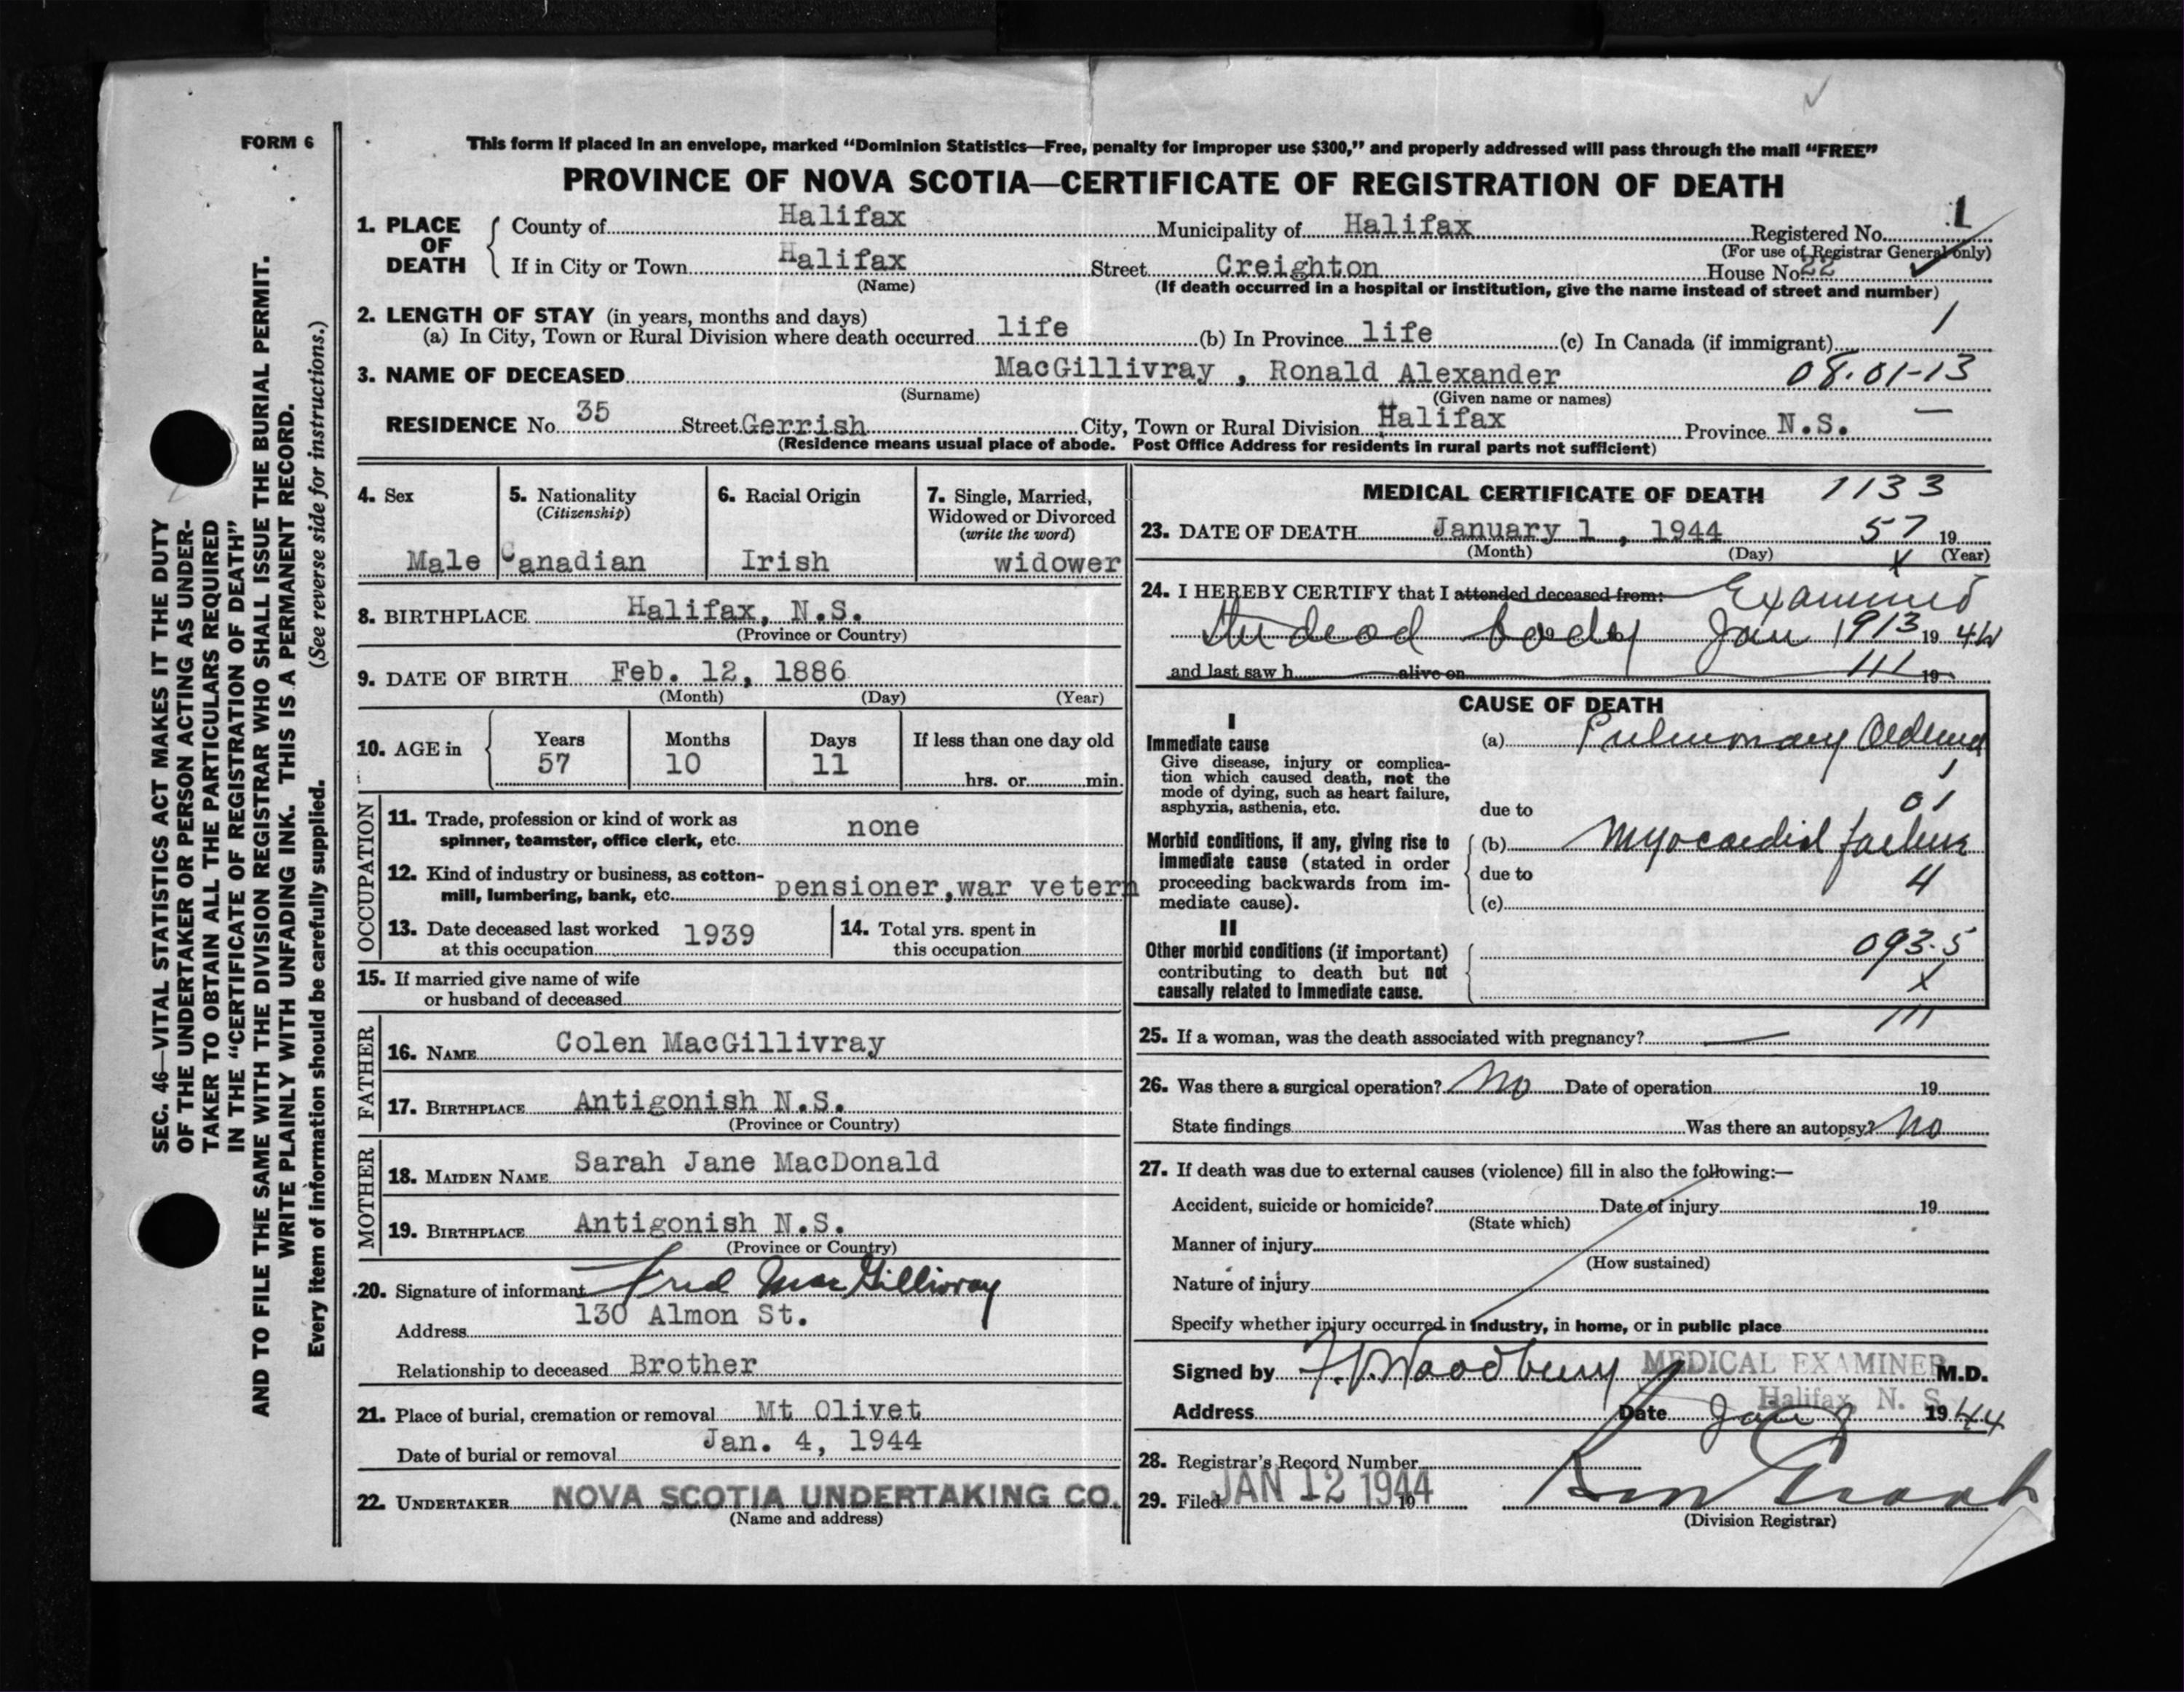 FORM 6
This form if placed in an envelope, marked “Dominion Statistics—Free, penalty for improper use $300,” and properly addressed will pass through the mail “FREE”
PROVINCE OF NOVA SCOTIA—CERTIFICATE OF REGISTRATION OF DEATH
1. PLACE OF DEATH
County of Halifax Municipality of Halifax Registered No. 1
(For use of Registrar General only)
If in City or Town Halifax Street Creighton House No. 22
(Name) (If death occurred in a hospital or institution, give the name instead of street and number)
2. LENGTH OF STAY (in years, months and days) 1
(a) In City, Town or Rural Division where death occurred life (b) In Province life (c) In Canada (if immigrant)
3. NAME OF DECEASED MacGillivray , Ronald Alexander 08.01-13
(Surname) (Given name or names)
RESIDENCE No. 35 Street Gerrish City, Town or Rural Division Halifax Province N.S.
(Residence means usual place of abode. Post Office Address for residents in rural parts not sufficient)
4. Sex
Male
5. Nationality
(Citizenship)
Canadian
6. Racial Origin
Irish
7. Single, Married,
Widowed or Divorced
(write the word)
widower
8. BIRTHPLACE Halifax, N.S.
(Province or Country)
9. DATE OF BIRTH Feb. 12, 1886
(Month) (Day) (Year)
10. AGE in Years Months Days If less than one day old
57 10 11 hrs. or min.
OCCUPATION
11. Trade, profession or kind of work as
spinner, teamster, office clerk, etc. none
12. Kind of industry or business, as cotton-
mill, lumbering, bank, etc. pensioner,war vetern
13. Date deceased last worked
at this occupation 1939
14. Total yrs. spent in
this occupation
15. If married give name of wife
or husband of deceased
FATHER
16. NAME Colen MacGillivray
17. BIRTHPLACE Antigonish N.S.
(Province or Country)
MOTHER
18. MAIDEN NAME Sarah Jane MacDonald
19. BIRTHPLACE Antigonish N.S.
(Province or Country)
20. Signature of informant Fred MacGillivray
Address 130 Almon St.
Relationship to deceased Brother
21. Place of burial, cremation or removal Mt Olivet
Date of burial or removal Jan. 4, 1944
22. UNDERTAKER NOVA SCOTIA UNDERTAKING CO.
(Name and address)
MEDICAL CERTIFICATE OF DEATH 1133
23. DATE OF DEATH January 1 , 1944 57 19
(Month) (Day) (Year)
X
24. I HEREBY CERTIFY that I attended deceased from: Examined
the dead body Jan 1913 19 44
and last saw h alive on 111 19
CAUSE OF DEATH
I
Immediate cause (a) Pulmonary Oedema
Give disease, injury or complica-
tion which caused death, not the
mode of dying, such as heart failure,
asphyxia, asthenia, etc. due to
1
01
Morbid conditions, if any, giving rise to
immediate cause (stated in order
proceeding backwards from im-
mediate cause).
(b) Myocardial failure
due to 4
(c)
II
Other morbid conditions (if important)
contributing to death but not
causally related to immediate cause.
093.5
X
111
25. If a woman, was the death associated with pregnancy? —
26. Was there a surgical operation? No Date of operation 19
State findings Was there an autopsy? No
27. If death was due to external causes (violence) fill in also the following:—
Accident, suicide or homicide? Date of injury 19
(State which)
Manner of injury
(How sustained)
Nature of injury
Specify whether injury occurred in industry, in home, or in public place
Signed by F.V. Woodbury MEDICAL EXAMINER M.D.
Halifax, N. S.
Address Date Jan 1944
28. Registrar's Record Number
29. Filed JAN 12 1944 19
(Division Registrar)
SEC. 46—VITAL STATISTICS ACT MAKES IT THE DUTY
OF THE UNDERTAKER OR PERSON ACTING AS UNDER-
TAKER TO OBTAIN ALL THE PARTICULARS REQUIRED
IN THE “CERTIFICATE OF REGISTRATION OF DEATH”
AND TO FILE THE SAME WITH THE DIVISION REGISTRAR WHO SHALL ISSUE THE BURIAL PERMIT.
WRITE PLAINLY WITH UNFADING INK. THIS IS A PERMANENT RECORD.
Every item of information should be carefully supplied. (See reverse side for instructions.)